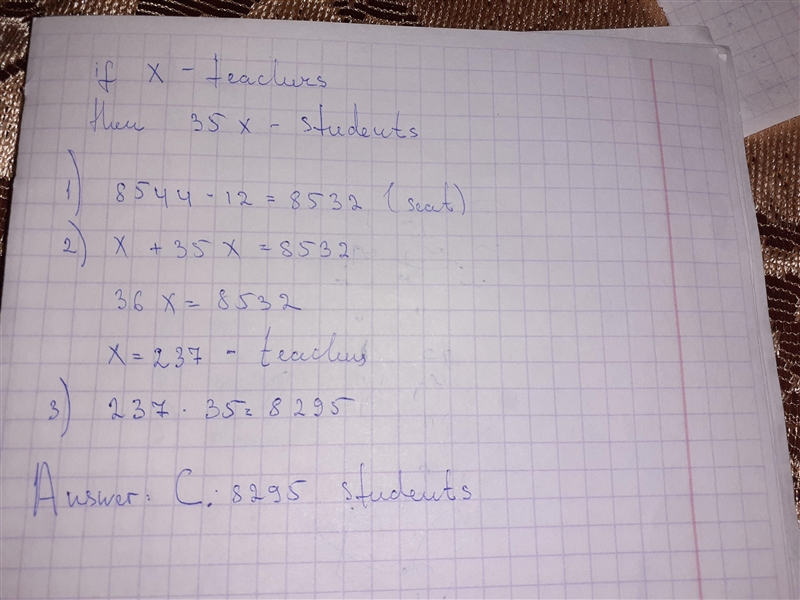 if x - teachers
then 35 x - students
1) 8544 - 12 = 8532 (seat)
2) x + 35 x = 8532
36 x = 8532
x = 237 - teachers
3) 237 · 35 = 8295
Answer: C. 8295 students